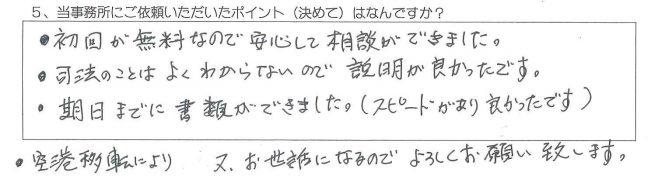 5、当事務所にご依頼いただいたポイント（決めて）はなんですか？
・初回が無料なので安心して相談ができました。
・司法のことはよくわからないので説明が良かったです。
・期日までに書類ができました。（スピードがあり良かったです）
・空港移転により 又、お世話になるのでよろしくお願い致します。